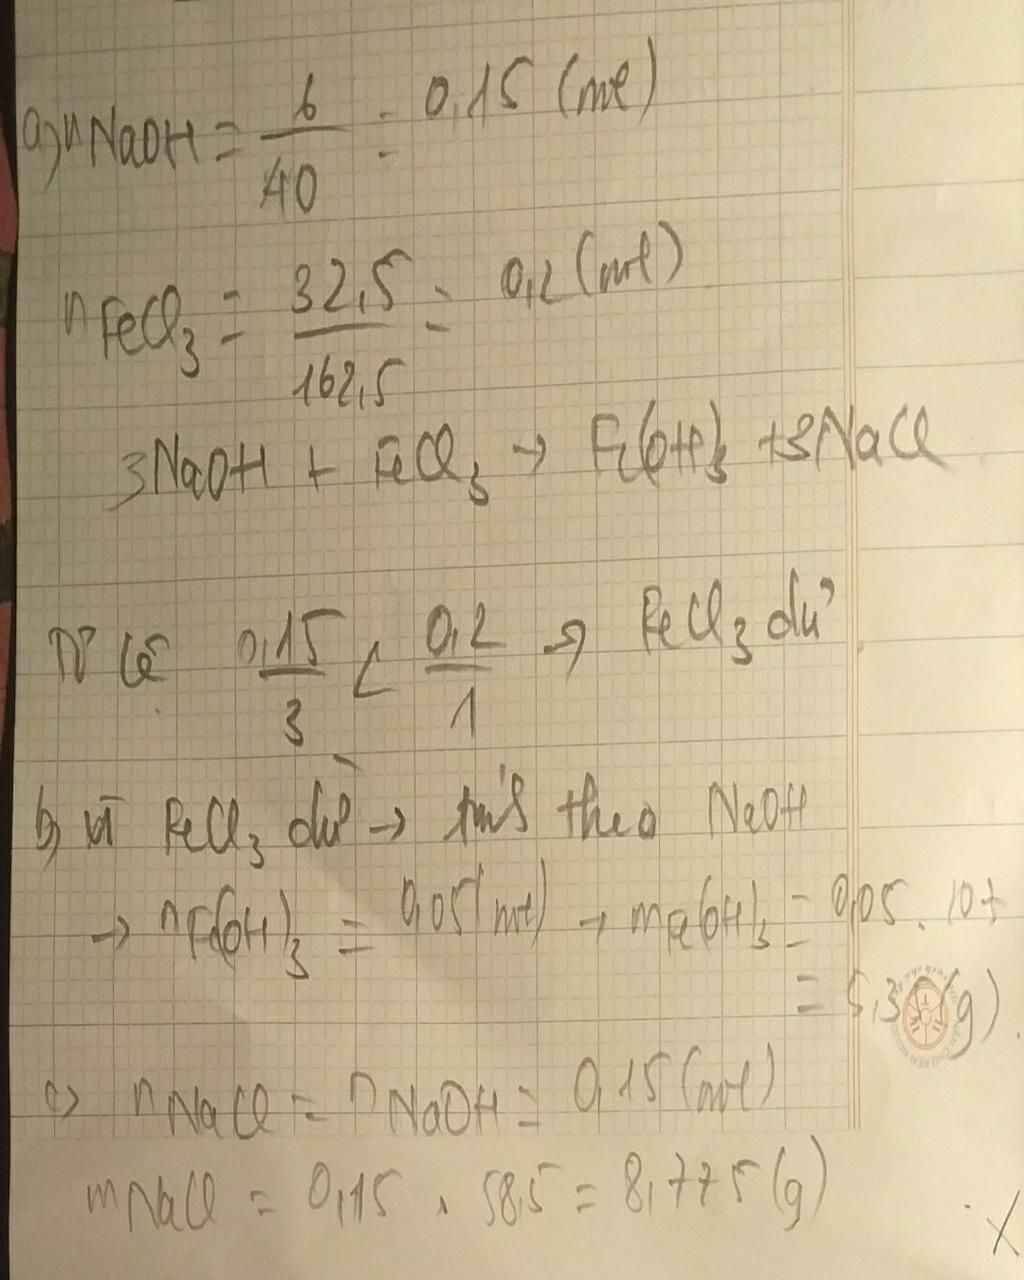 a) nNaOH = 6/40 = 0,15 (mol)
nFeCl3 = 32,5/162,5 = 0,2 (mol)
3NaOH + FeCl3 → Fe(OH)3 + 3NaCl
Tỉ lệ 0,15/3 < 0,2/1 => FeCl3 dư
b) Vì FeCl3 dư → tính theo NaOH
→ nFe(OH)3 = 0,05 (mol) → mFe(OH)3 = 0,05 . 107
= 5,35 (g)
c) nNaCl = nNaOH = 0,15 (mol)
mNaCl = 0,15 . 58,5 = 8,775 (g)